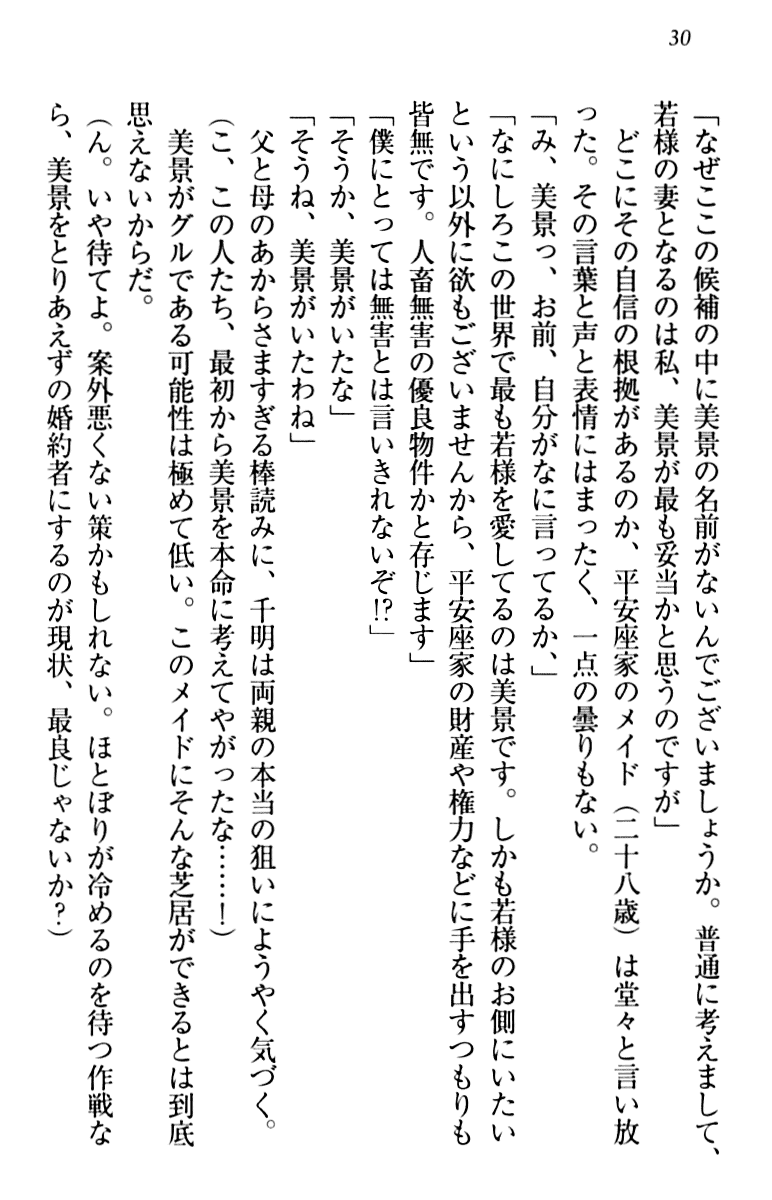 30
「なぜここの候補の中に美景の名前がないんでございましょうか。普通に考えまして、
若様の妻となるのは私、美景が最も妥当かと思うのですが」
　どこにその自信の根拠があるのか、平安座家のメイド（二十八歳）は堂々と言い放
った。その言葉と声と表情にはまったく、一点の曇りもない。
「み、美景っ、お前、自分がなに言ってるか、」
「なにしろこの世界で最も若様を愛してるのは美景です。しかも若様のお側にいたい
という以外に欲もございませんから、平安座家の財産や権力などに手を出すつもりも
皆無です。人畜無害の優良物件かと存じます」
「僕にとっては無害とは言いきれないぞ!?」
「そうか、美景がいたな」
「そうね、美景がいたわね」
　父と母のあからさますぎる棒読みに、千明は両親の本当の狙いにようやく気づく。
（こ、この人たち、最初から美景を本命に考えてやがったな……！）
　美景がグルである可能性は極めて低い。このメイドにそんな芝居ができるとは到底
思えないからだ。
（ん。いや待てよ。案外悪くない策かもしれない。ほとぼりが冷めるのを待つ作戦な
ら、美景をとりあえずの婚約者にするのが現状、最良じゃないか？）